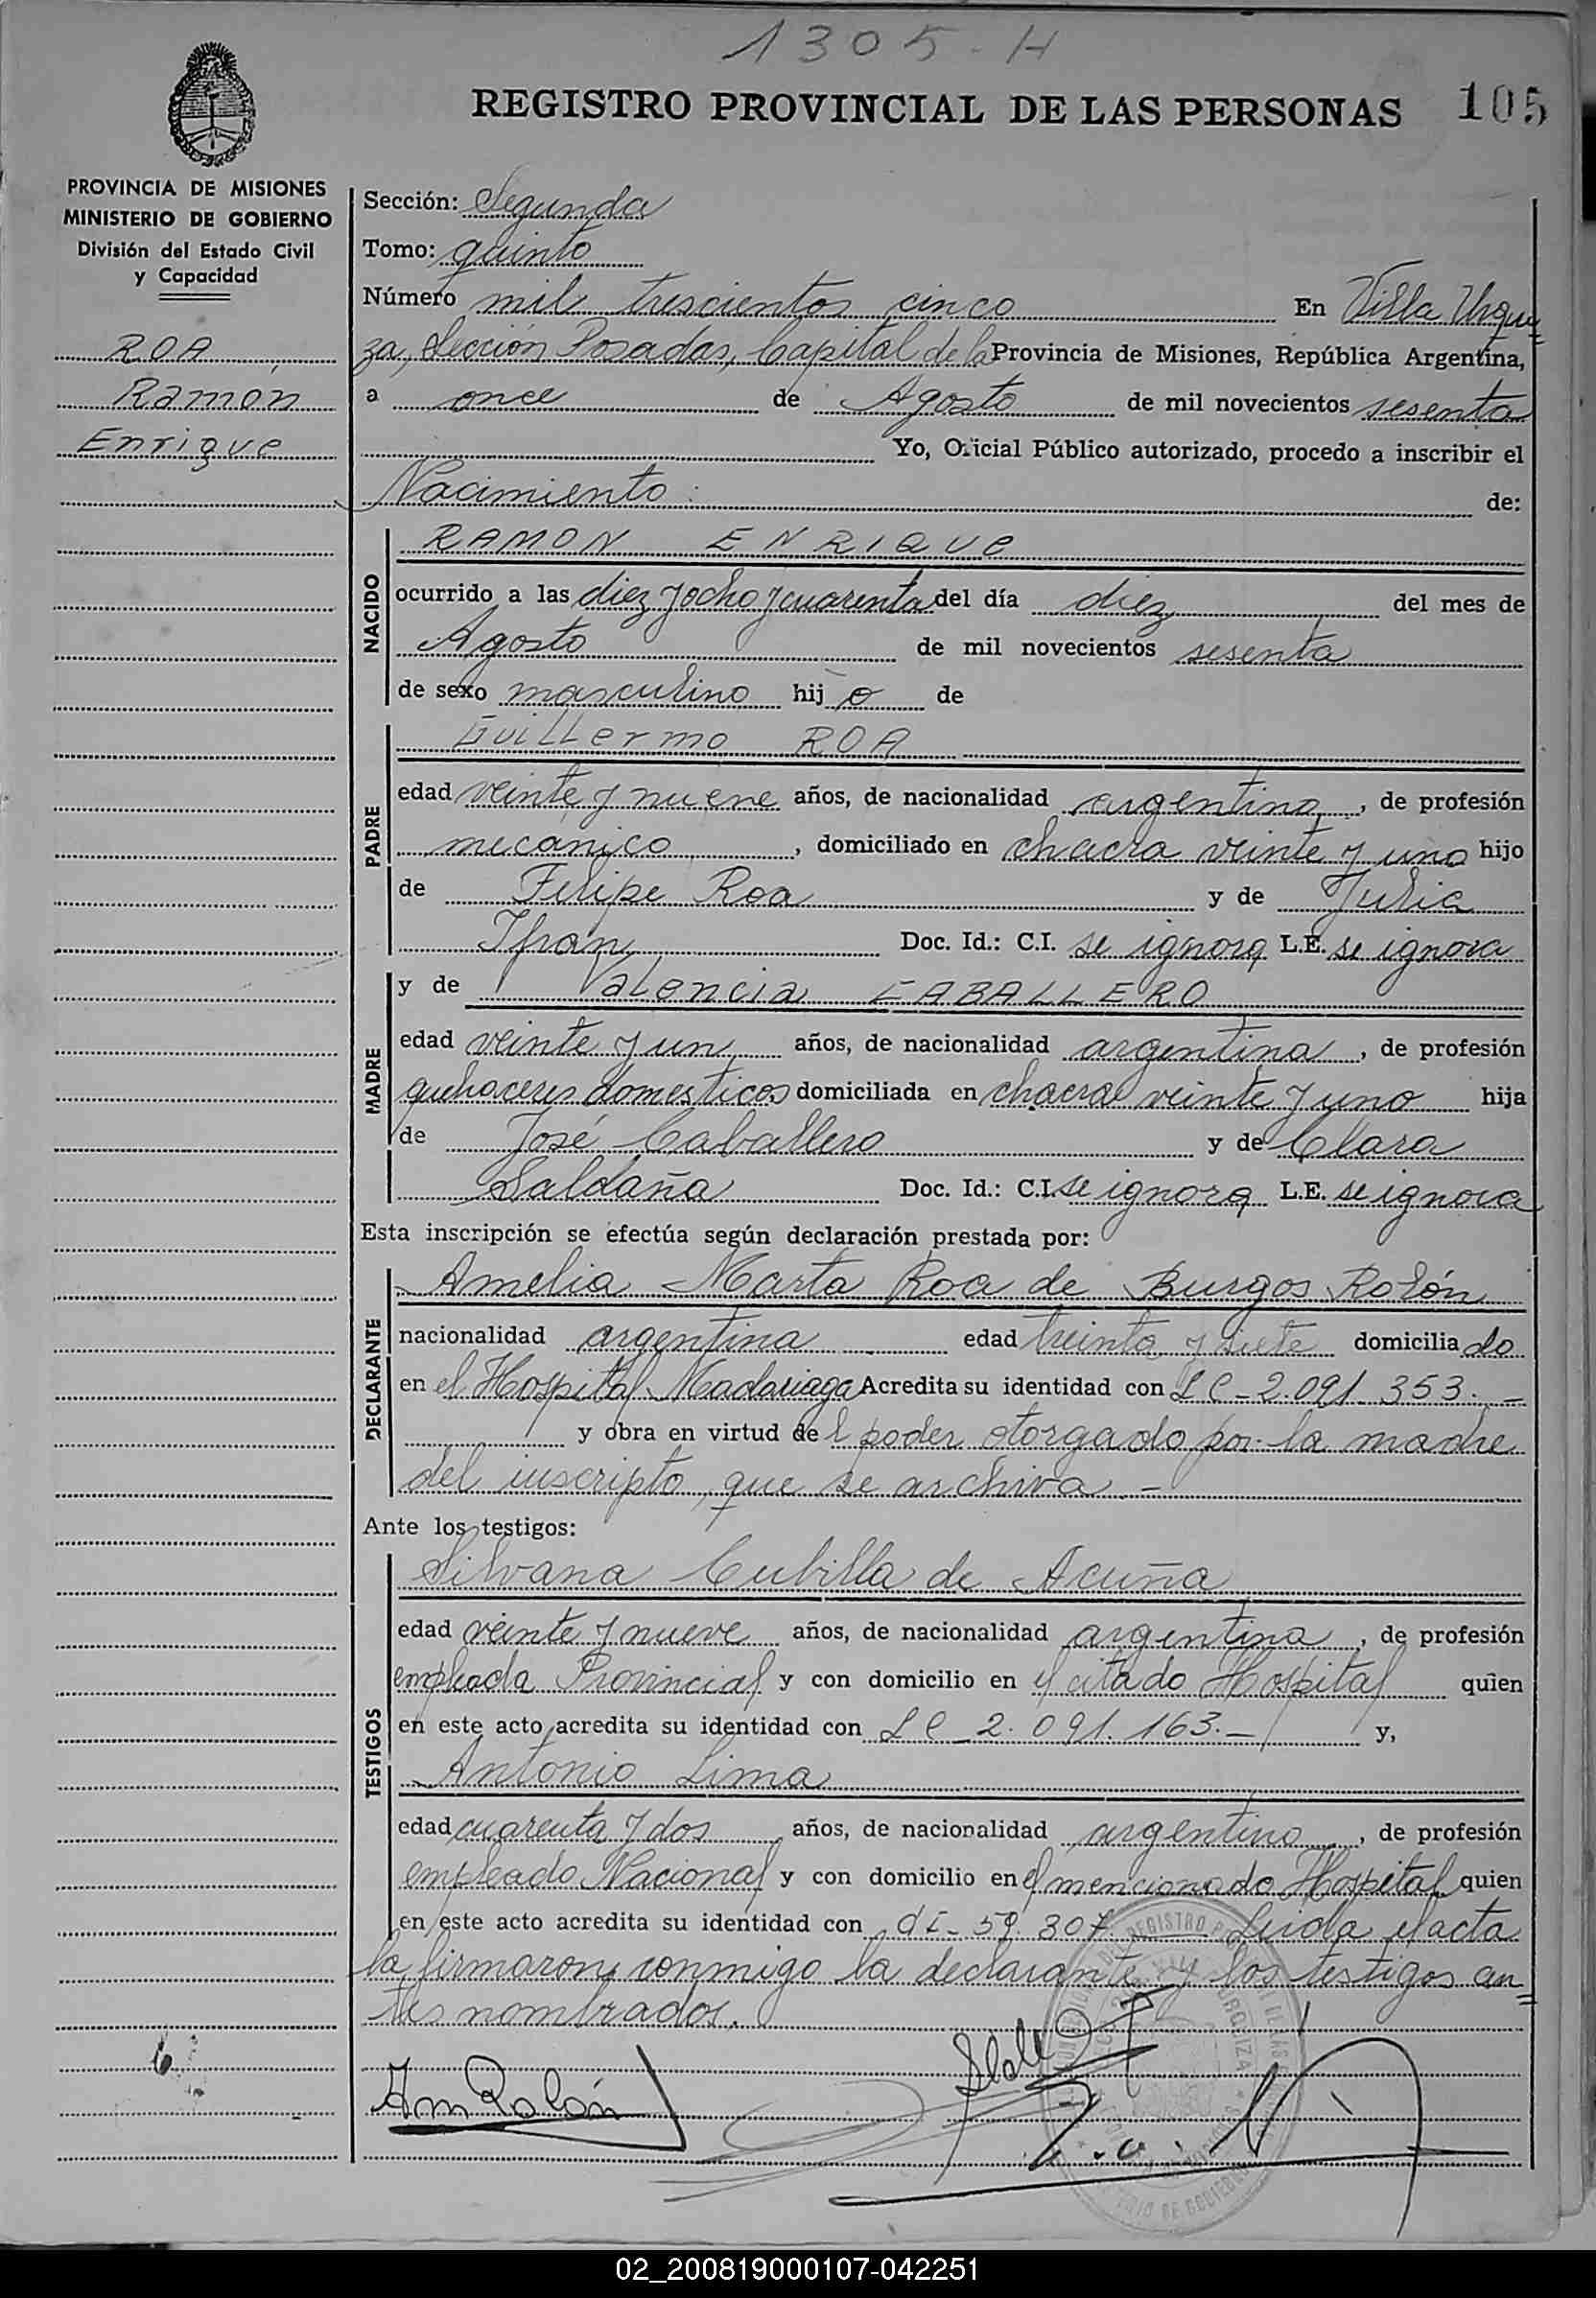 1305-H
REGISTRO PROVINCIAL DE LAS PERSONAS 105
PROVINCIA DE MISIONES
MINISTERIO DE GOBIERNO
División del Estado Civil
y Capacidad
ROA,
Ramón
Enrique
Sección: Segunda
Tomo: quinto
Número mil trescientos cinco En Villa Urqui=
za, Sección Posadas, Capital de la Provincia de Misiones, República Argentina,
a once de Agosto de mil novecientos sesenta
Yo, Oficial Público autorizado, procedo a inscribir el
Nacimiento: de:
NACIDO
RAMON ENRIQUE
ocurrido a las diez y ocho y cuarenta del día diez del mes de
Agosto de mil novecientos sesenta
de sexo masculino hijo de
PADRE
Guillermo ROA
edad veinte y nueve años, de nacionalidad argentina, de profesión
mecanico, domiciliado en chacra veinte y uno hijo
de Felipe Roa y de Julia
Ifrán Doc. Id.: C.I. se ignora L.E. se ignora
MADRE
y de Valencia CABALLERO
edad veinte y un años, de nacionalidad argentina, de profesión
quehaceres domesticos domiciliada en chacra veinte y uno hija
de José Caballero y de Clara
Saldaña Doc. Id.: C.I. se ignora L.E. se ignora
Esta inscripción se efectúa según declaración prestada por:
DECLARANTE
Amelia Marta Roa de Burgos Rolón
nacionalidad argentina edad treinta y siete domiciliado
en el Hospital Madariaga Acredita su identidad con L C - 2.091.353.-
y obra en virtud del poder otorgado por la madre
del inscripto, que se archiva.-
Ante los testigos:
TESTIGOS
Silvana Cubilla de Acuña
edad veinte y nueve años, de nacionalidad argentina, de profesión
empleada Provincial y con domicilio en el citado Hospital quien
en este acto acredita su identidad con L C - 2.091.163.- y,
Antonio Lima
edad cuarenta y dos años, de nacionalidad argentino, de profesión
empleado Nacional y con domicilio en el mencionado Hospital quien
en este acto acredita su identidad con 59.307 Leida el acta
la firmaron conmigo la declarante y los testigos an=
tes nombrados.
Am Rolón
02_200819000107-042251